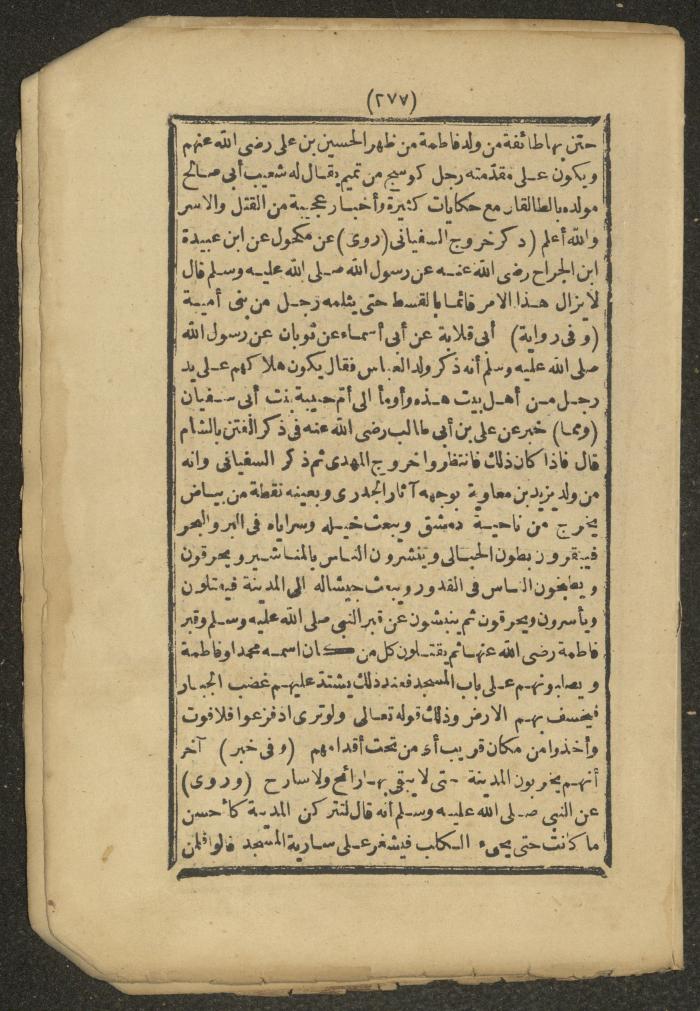 (٢٧٧)
حتى بها طائفة من ولد فاطمة من ظهر الحسين بن على رضى الله عنهم
ويكون على مقدمته رجل كوسج من تميم يقال له شعيب أبى صالح
مولده بالطالقان مع حكايات كثيرة وأخبار عجيبة من القتل والاسر
والله أعلم (ذكر خروج السفيانى (روى) عن مكحول عن ابن عبيدة
ابن الجراح رضى الله عنه عن رسول الله صلى الله عليه وسلم قال
لا يزال هذا الامر قائما بالقسط حتى يثلمه رجل من بنى أمية
(وفى رواية) أبى قلابة عن أبى أسماء عن ثوبان عن رسول الله
صلى الله عليه وسلم أنه ذكر ولد العباس فقال يكون هلاكهم على يد
رجل من أهل بيت هذه وأومأ الى أم حبيبة بنت أبى سفيان
(ومما) خبر عن على بن أبى طالب رضى الله عنه فى ذكر الفتن بالشام
قال فاذا كان ذلك فانتظروا خروج المهدى ثم ذكر السفيانى وانه
من ولد يزيد بن معاوية بوجهه آثار الجدرى وبعينه نقطة من بياض
يخرج من ناحية دمشق ويبعث خيله وسراياه فى البر والبحر
فيبقرون بطون الحبالى وينشرون الناس بالمناشير ويحرقون
ويطبخون الناس فى القدور ويبعث جيشاله الى المدينة فيقتلون
ويأسرون ويحرقون ثم ينبشون عن قبر النبى صلى الله عليه وسلم وقبر
فاطمة رضى الله عنها ثم يقتلون كل من كان اسمه محمدا وفاطمة
ويصلبونهم على باب المسجد فعند ذلك يشتد عليهم غضب الجبار
فيخسف بهم الارض وذلك قوله تعالى ولو ترى اذ فزعوا فلا فوت
وأخذوا من مكان قريب أى من تحت أقدامهم (وفى خبر) آخر
أنهم يخربون المدينة حتى لا يبقى بها رائح ولا سارح (وروى)
عن النبى صلى الله عليه وسلم أنه قال لتتركن المدينة كأحسن
ما كانت حتى يجىء الكلب فيشغر على سارية المسجد قالوا فلمن